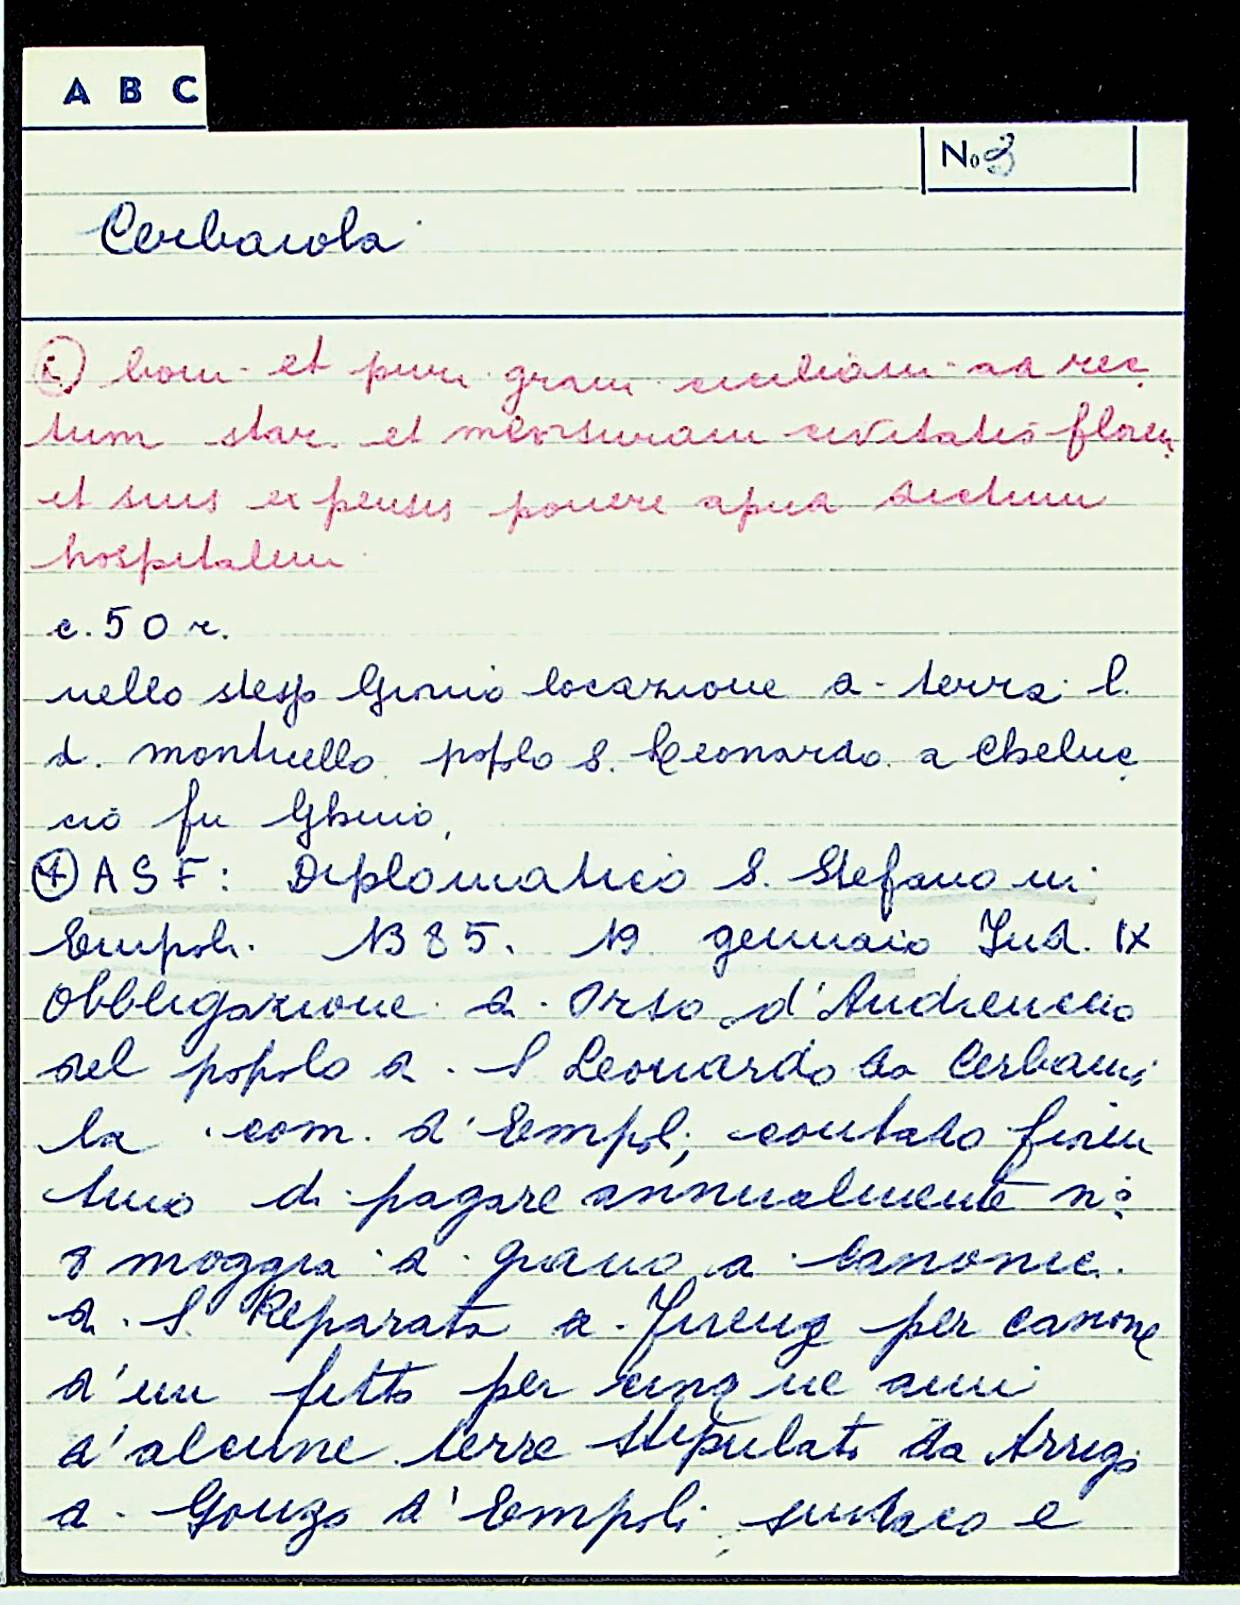 A B C
No 3
Cerbaiola
boni et puri grani siciliani ad rec
tum star. et mensuram civitatis floren
et suis expensis ponere apud dictum
hospitalem
c. 50 r.
nello stesso giorno locazione di terra l.
d. monticello popolo S. Leonardo a Cheluc
cio fu Ghuio,
④ ASF: Diplomatico S. Stefano in
Empoli. 1385. 19 gennaio Ind. IX
Obbligazione di Orso d'Andreuccio
del popolo di S Leonardo da Cerbaio
la com. d'Empoli, contado fioren
tino di pagare annualmente n°
8 moggia di grano a canonic.
di S. Reparata di Firenze per canone
d'un fitto per cinque anni
d'alcune terre stipulato da Arrigo
di Gonzo d'Empoli sindaco e